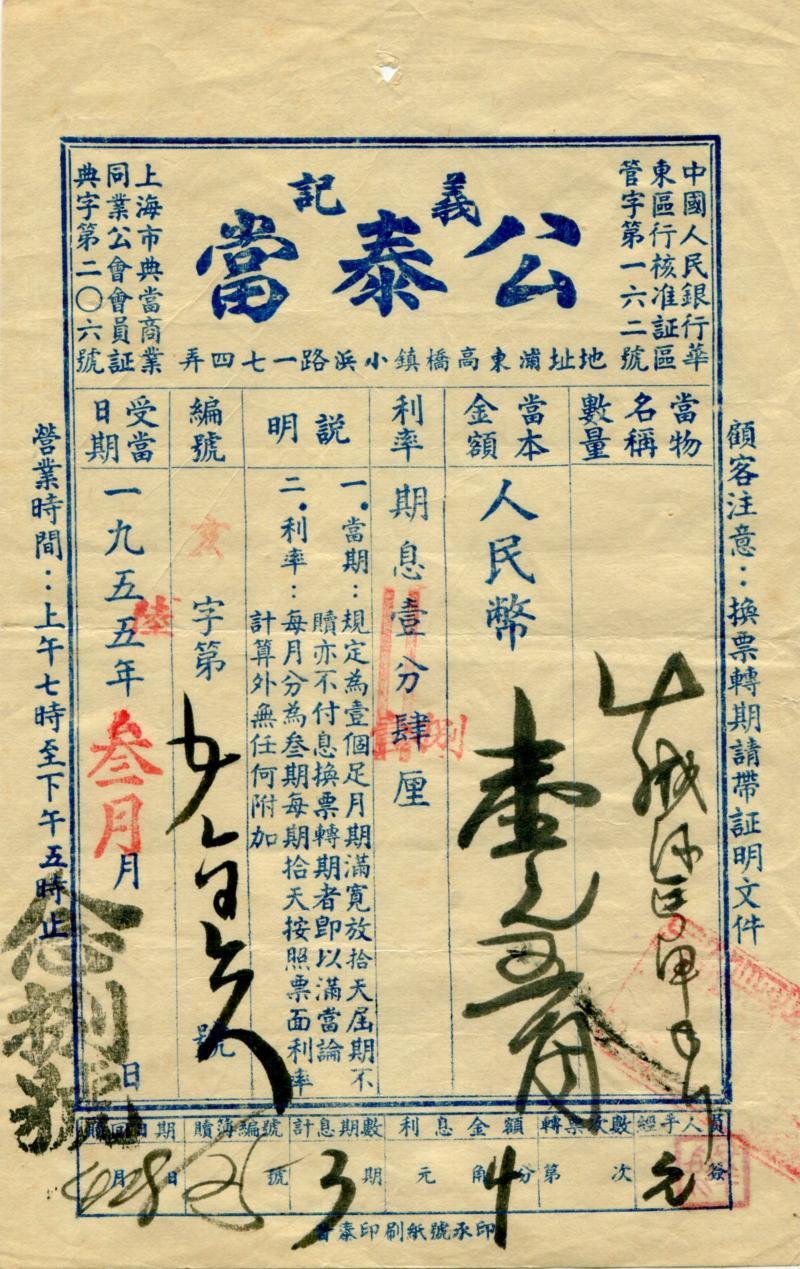 中國人民銀行華
東區行核准証區
管字第一六二號
義記
公泰當
上海市典當商業
同業公會會員証
典字第二〇六號
地址浦東高橋鎮小浜路一七四弄
顧客注意：換票轉期請帶証明文件
當物名稱數量
當本金額
人民幣
壹元五角
利率
期息壹分肆厘
捌
說明
一．當期：規定為壹個足月期滿寬放拾天屆期不
贖亦不付息換票轉期者即以滿當論
二．利率：每月分為叁期每期拾天按照票面利率
計算外無任何附加
編號
亥字第
號
受當日期
一九五五年
陸
叁月
月
日
念捌號
營業時間：上午七時至下午五時止
經手人員簽
元
轉票次數
第 次
利息金額
元角分
4
計息期數
3期
贖簿編號
號
贖回日期
月 日
4 28
泰印刷紙號承印